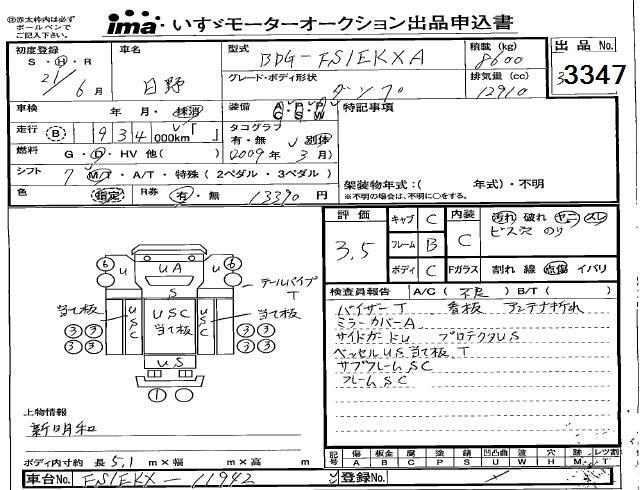 ㊟赤太枠内は必ず
ボールペンで
ご記入下さい。
ima いすゞモーターオークション出品申込書
初度登録 車名 型式 積載 (kg) 出品 No.
S・H・R BDG-FS1EKXA 8600
21年 6月 日野 グレード・ボディ形状 ダンプ 排気量 (cc) 12910 3347
車検 年 月・抹消 装備 A・P・P C S W 特記事項
走行 B 934,000km タコグラフ 有・無 別体
燃料 G・D・HV 他( ) (2009年 3月)
シフト 7 M/T・A/T・特殊(2ペダル・3ペダル) 架装物年式:( 年式)・不明
色 指定 R券 有・無 13390円 ※不明の場合は、不明に○をする。
評価 キャブ C 内装 汚れ 破れ ヤニ スレ
3.5 フレーム B C ビス穴 のり
ボディ C Fガラス 割れ 線 点傷 イバリ
検査員報告 A/C( 不足 ) B/T( )
バイザーT 看板 アンテナ折れ
ミラーカバーA
サイドガードU プロテクタUS
ベッセルUS当て板、T
サブフレームSC
フレームSC
6 U UA U 6
S テールパイプ T
当て板 USC USC 当て板 USC 当て板
3 3 3 3
3 3 3 3
US
1
上物情報
新明和
ボディ内寸約 長 5.1 m×幅 m×高 m
記号 傷 板金 腐 塗 錆 凹凸曲 波 穴 跡 レツ割
A B C P S U W H M T
車台No. FS1EKX-11942 登録No.